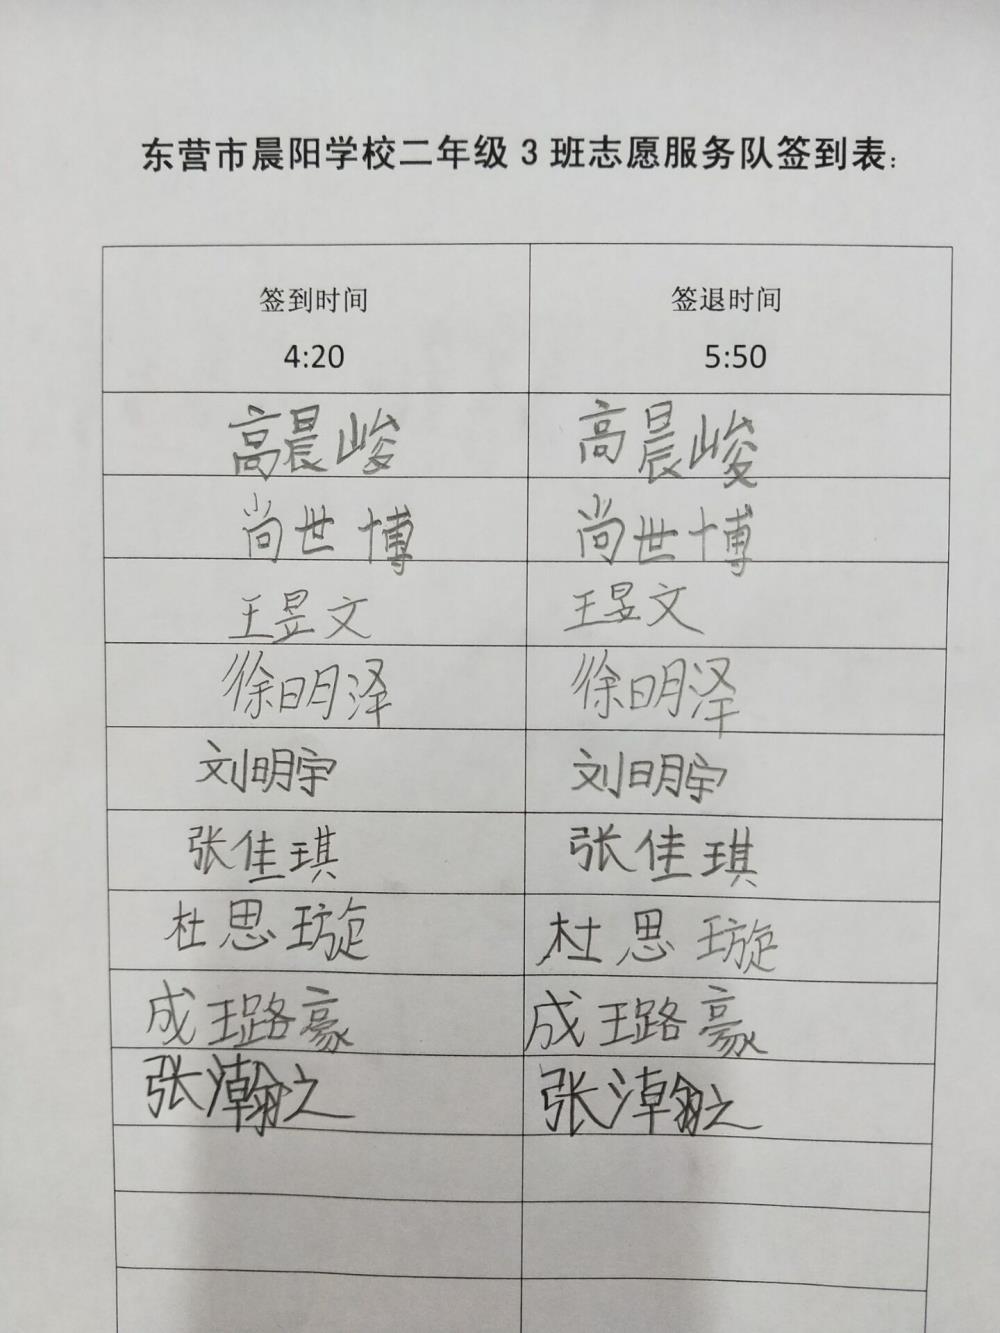 东营市晨阳学校二年级3班志愿服务队签到表:
签到时间 签退时间
4:20 5:50
高晨峻 高晨峻
尚世博 尚世博
王昱文 王昱文
徐明泽 徐明泽
刘明宇 刘明宇
张佳琪 张佳琪
杜思璇 杜思璇
成璐豪 成璐豪
张瀚之 张瀚之